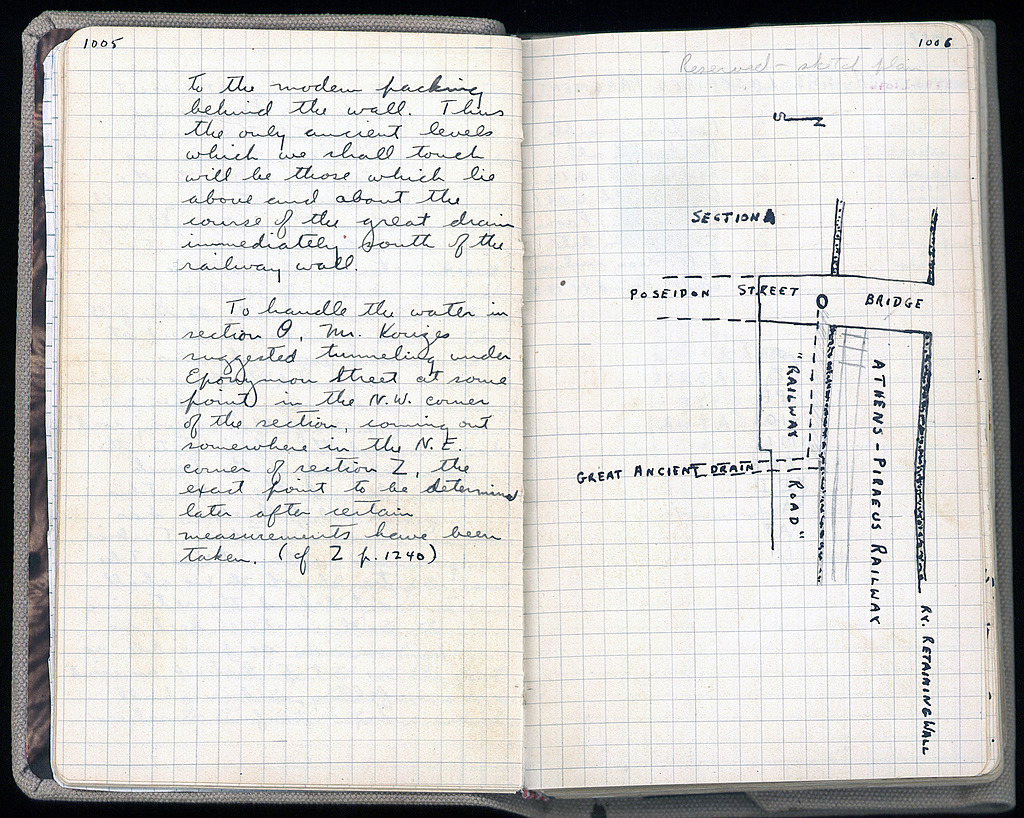 1005
to the modern packing
behind the wall. Thus
the only ancient levels
which we shall touch
will be those which lie
above and about the
course of the great drain
immediately south of the
railway wall.
To handle the water in
section Θ, Mr. Korizes
suggested tunneling under
Eponymon Street at some
point in the N.W. corner
of the section, coming out
somewhere in the N.E.
corner of section Z, the
exact point to be determined
later after certain
measurements have been
taken. (cf Z p. 1240)
1006
Reserved - sketch plan
SECTION A
POSEIDON STREET BRIDGE
"RAILWAY ROAD"
ATHENS - PIRAEUS RAILWAY
GREAT ANCIENT DRAIN
RY. RETAINING WALL